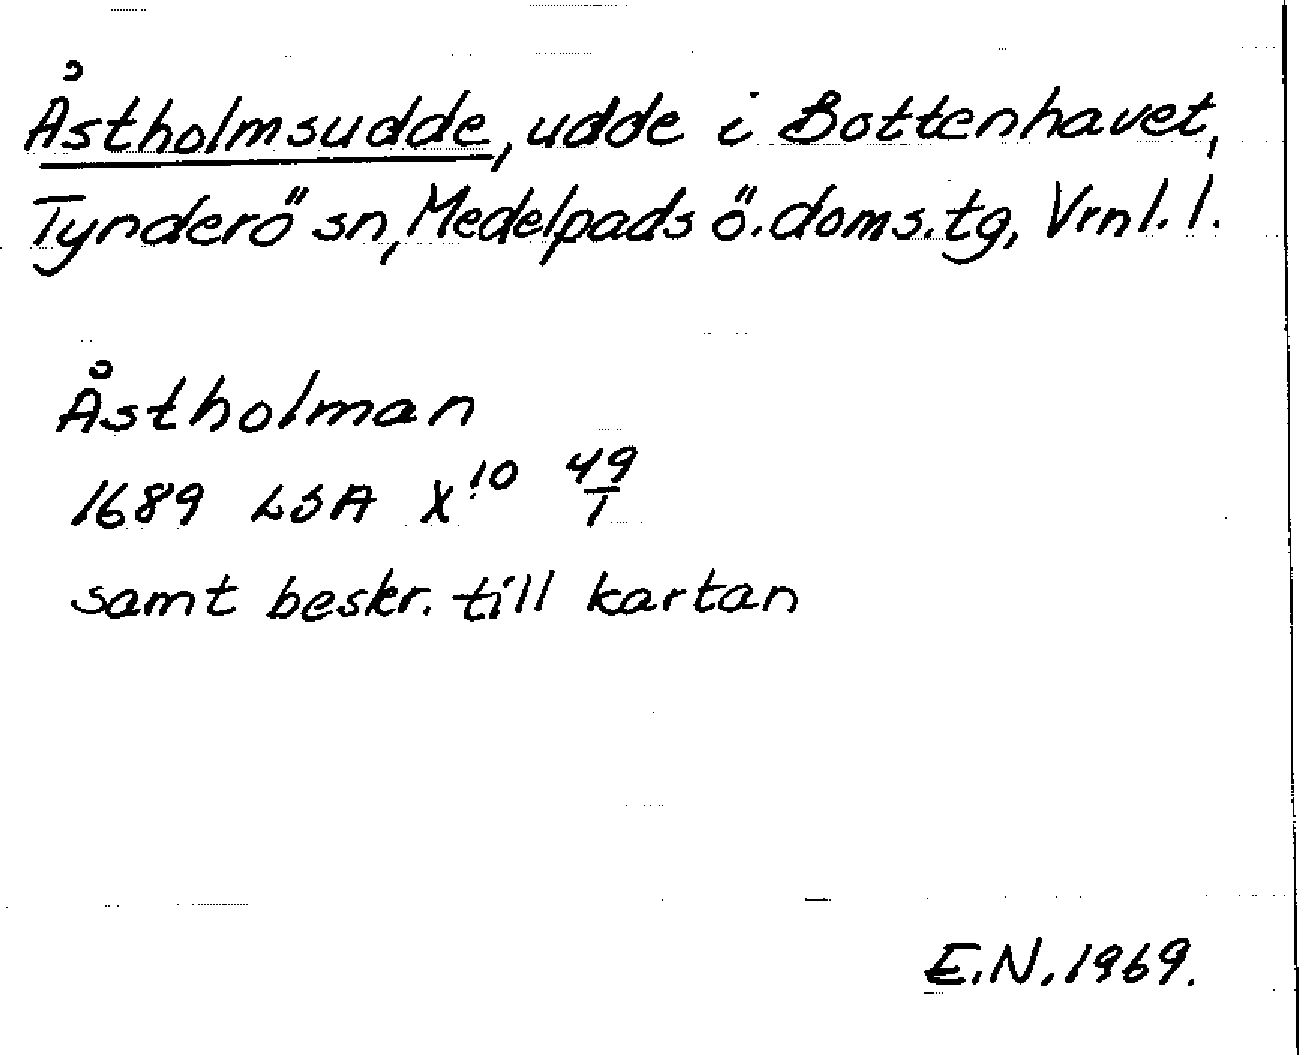 Åstholmsudde, udde i Bottenhavet,
Tynderö sn, Medelpads ö. doms.tg, Vrnl. l.
Åstholman
1689 LSA X¹⁰ 49/1
samt beskr. till kartan
E.N. 1969.